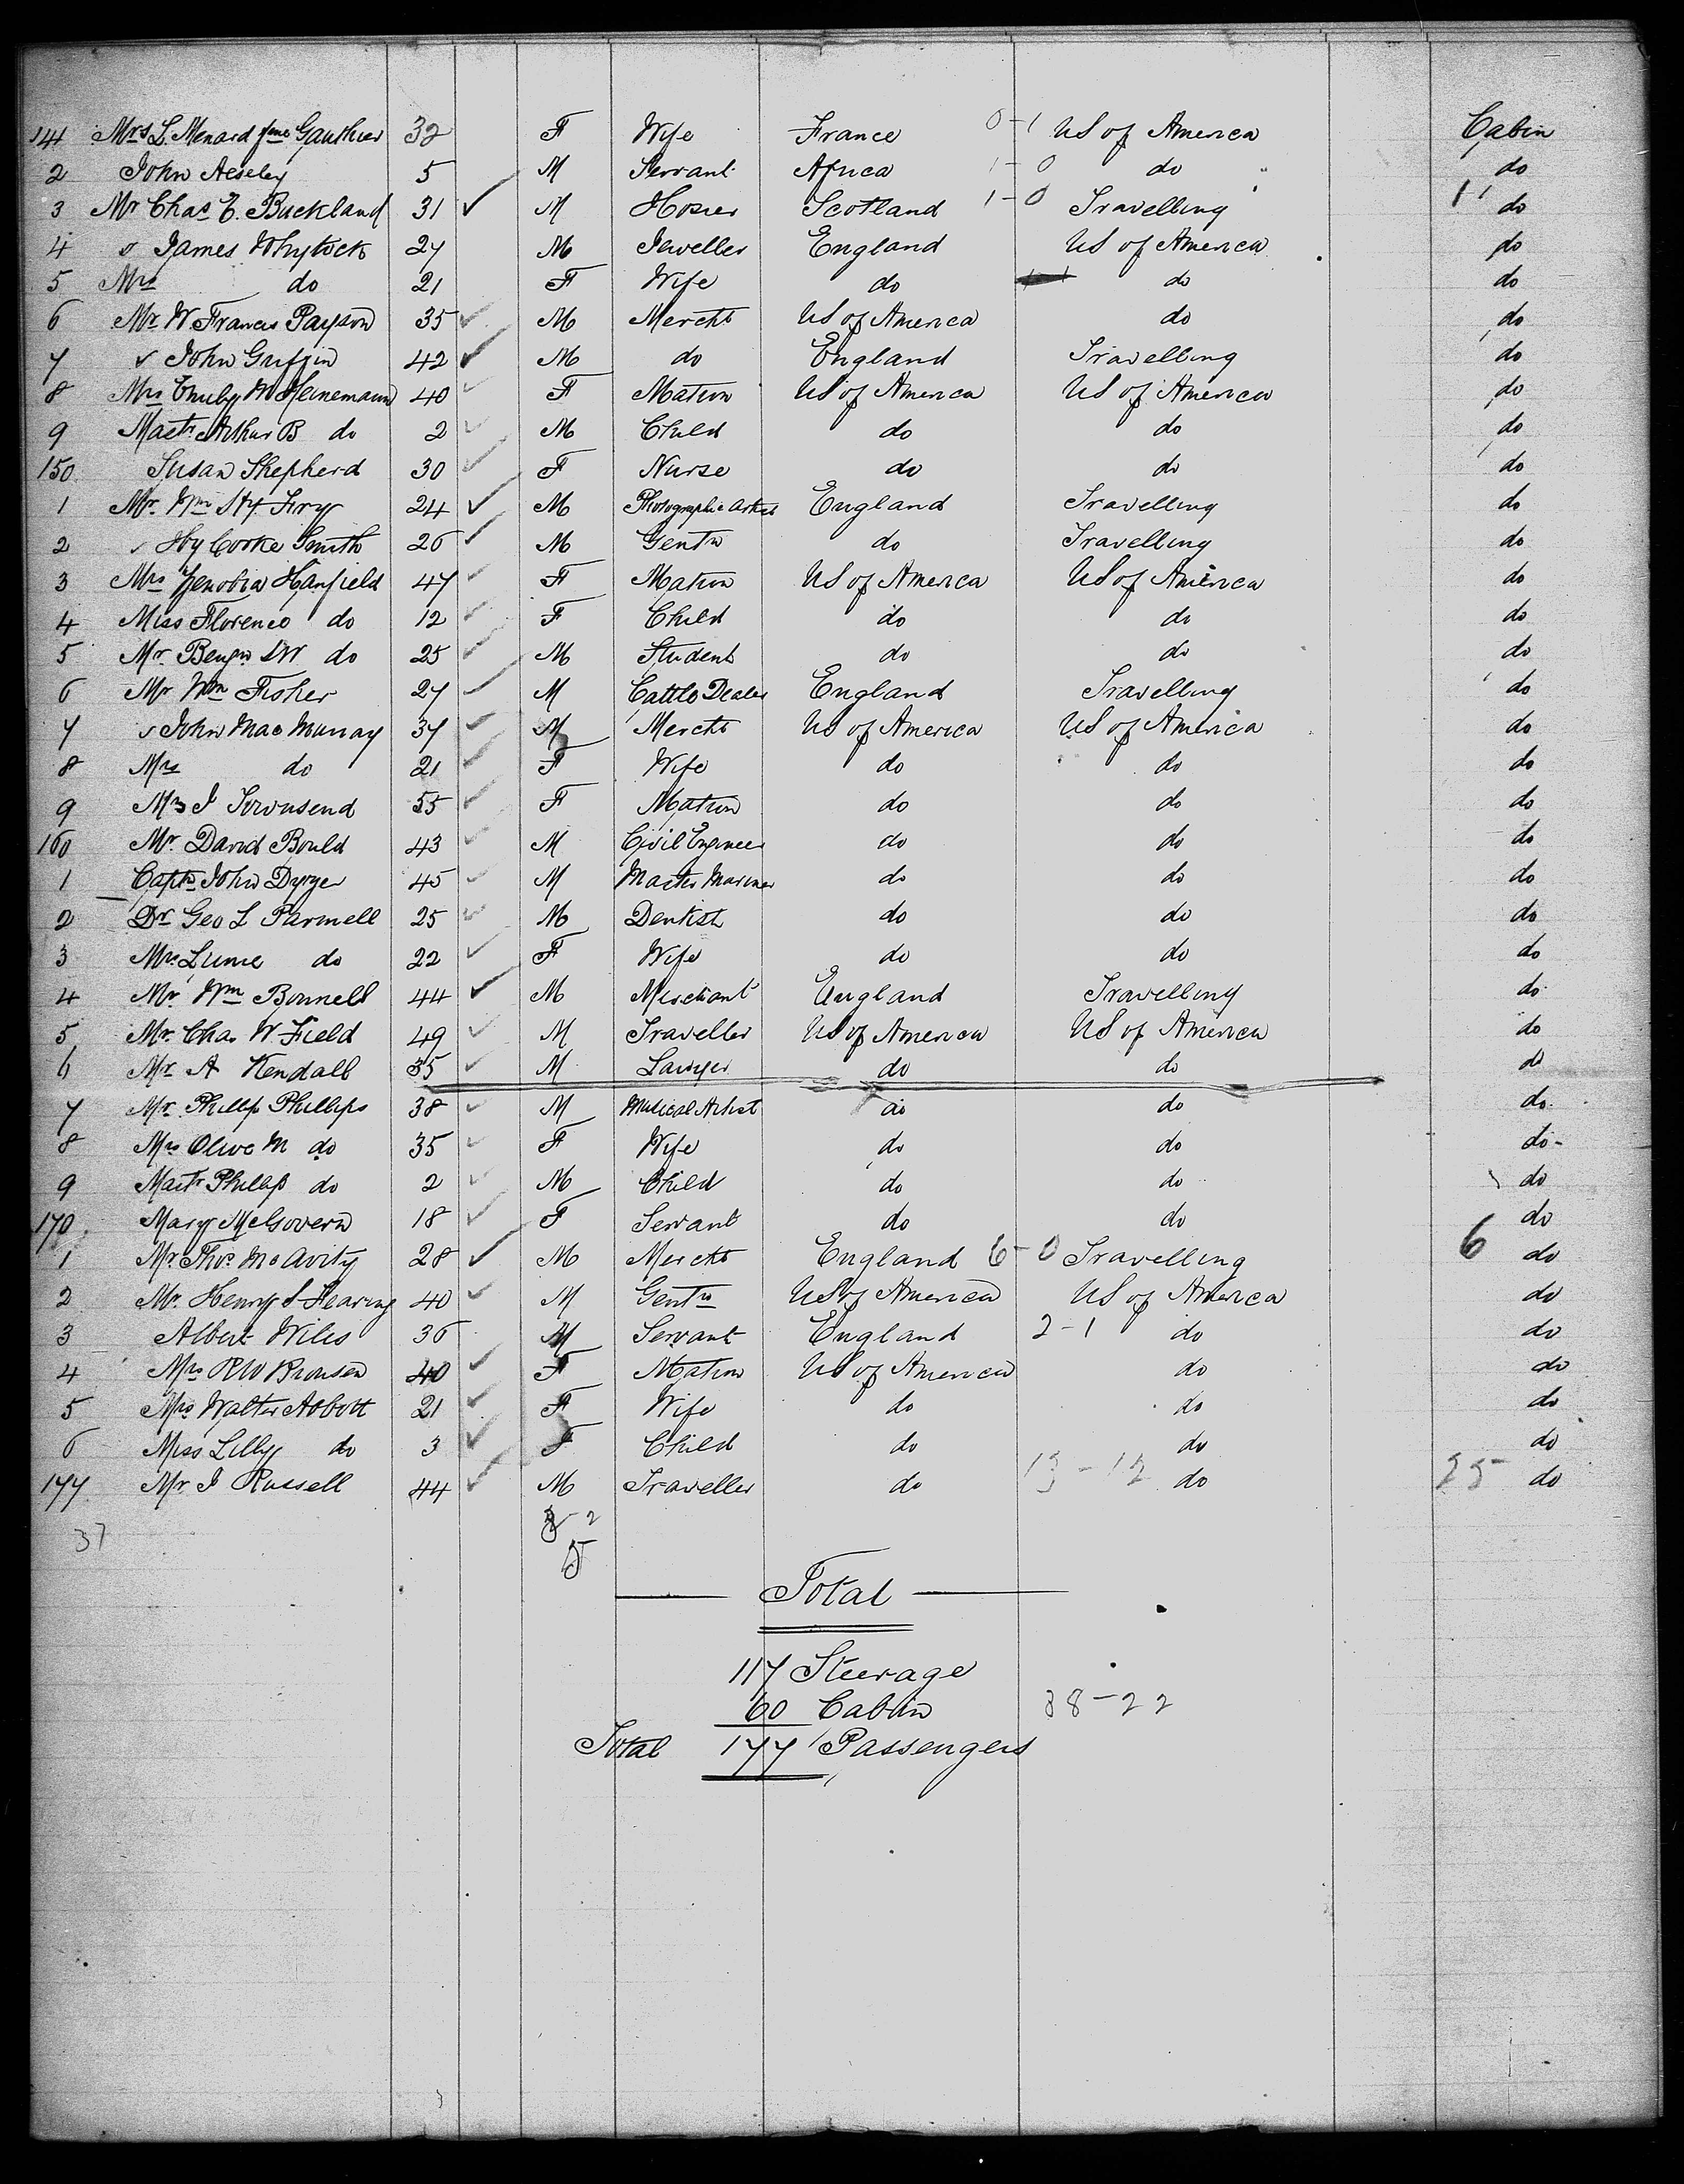 141 Mrs L. Menard fme Gauthier 32 F Wife France 0-1 US of America Cabin
2 John Aeseley 5 M Servant Africa 1-0 do do
3 Mr Chas E. Buckland 31 ✓ M Hosier Scotland 1-0 Travelling 1 do
4 " James Whytock 27 M Jeweller England US of America do
5 Mrs do 21 F Wife do do do
6 Mr W Francis Payson 35 ✓ M Mercht US of America do do
7 " John Griffin 42 ✓ M do England Travelling do
8 Mrs Emily M Heinemann 40 ✓ F Matron US of America US of America do
9 Mastr Arthur B do 2 ✓ M Child do do do
150 Susan Shepherd 30 ✓ F Nurse do do do
1 Mr Wm Hy Fry 24 ✓ M Photographic Artist England Travelling do
2 " Hy Cooke Smith 26 ✓ M Gentn do Travelling do
3 Mrs Zenobia Hanfield 47 ✓ F Matron US of America US of America do
4 Miss Florence do 12 ✓ F Child do do do
5 Mr Benjn do 25 ✓ M Student do do do
6 Mr Wm Fisher 27 ✓ M Cattle Dealer England Travelling do
7 " John Mac Murray 37 ✓ M Mercht US of America US of America do
8 Mrs do 21 ✓ F Wife do do do
9 Mrs J Townsend 55 ✓ F Matron do do do
160 Mr David Bould 43 ✓ M Civil Engineer do do do
1 Captn John Dyzer 45 ✓ M Master Mariner do do do
2 Dr Geo L Parmell 25 ✓ M Dentist do do do
3 Mrs do 22 ✓ F Wife do do do
4 Mr Wm Bonnell 44 ✓ M Merchant England Travelling do
5 Mr Chas W Field 49 ✓ M Traveller US of America US of America do
6 Mr A Kendall 35 ✓ M Lawyer do do do
7 Mr Phillip Phillips 38 ✓ M Musical Artist do do do
8 Mrs Olive M do 35 ✓ F Wife do do do
9 Mastr Phillip do 2 ✓ M Child do do do
170 Mary McGovern 18 ✓ F Servant do do do
1 Mr Thos McAvity 28 ✓ M Mercht England 6-0 Travelling 6 do
2 Mr Henry S Hearing 40 ✓ M Gentn US of America US of America do
3 Albert Wiles 36 M Servant England 2-1 do do
4 Mrs RW Bronsen 40 ✓ F Matron US of America do do
5 Mrs Walter Abbott 21 ✓ F Wife do do do
6 Miss Lilly do 3 ✓ F Child do do do
177 Mr J Russell 44 ✓ M Traveller do 13-12 do 25 do
37
Total
117 Steerage
60 Cabin 38-22
Total 177 Passengers